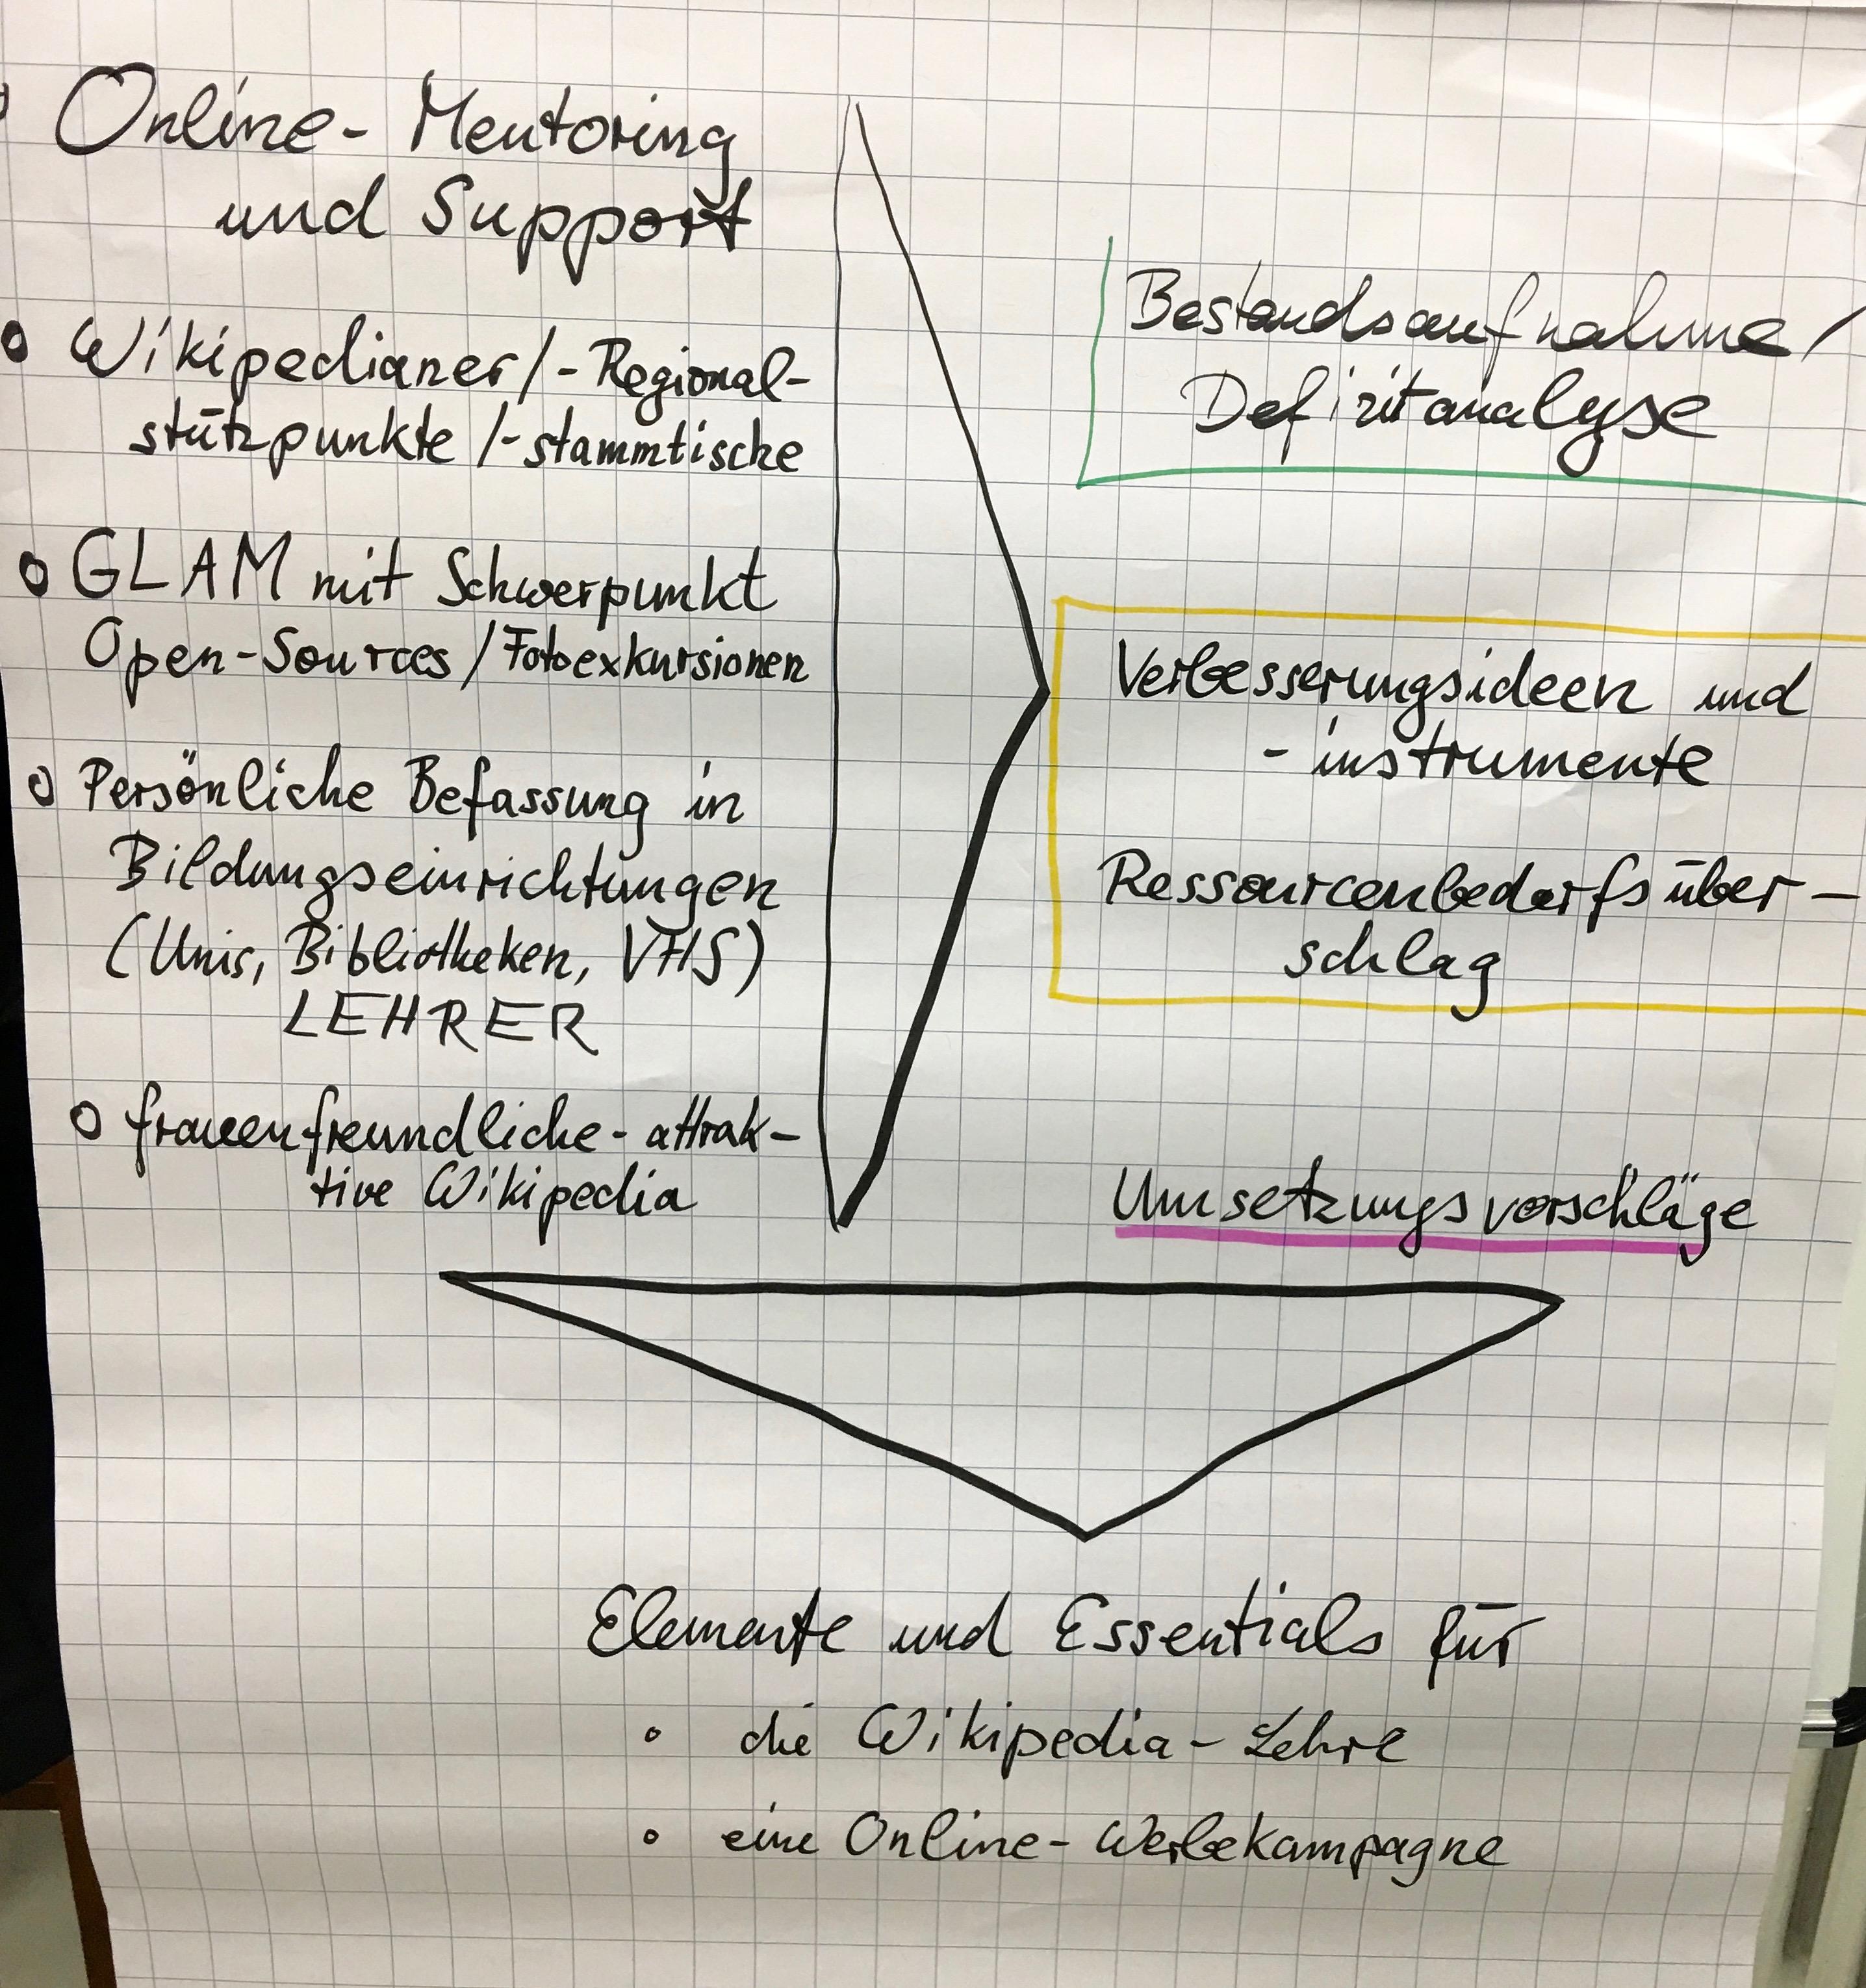 Online-Mentoring
und Support
o Wikipedianer/-Regional-
stützpunkte/-stammtische
o GLAM mit Schwerpunkt
Open-Sources/Fotoexkursionen
o Persönliche Befassung in
Bildungseinrichtungen
(Unis, Bibliotheken, VHS)
LEHRER
o frauenfreundliche-attrak-
tive Wikipedia
Bestandsaufnahme/
Defizitanalyse
Verbesserungsideen und
-instrumente
Ressourcenbedarfsüber-
schlag
Umsetzungsvorschläge
Elemente und Essentials für
° die Wikipedia-Lehre
° eine Online-Werbekampagne